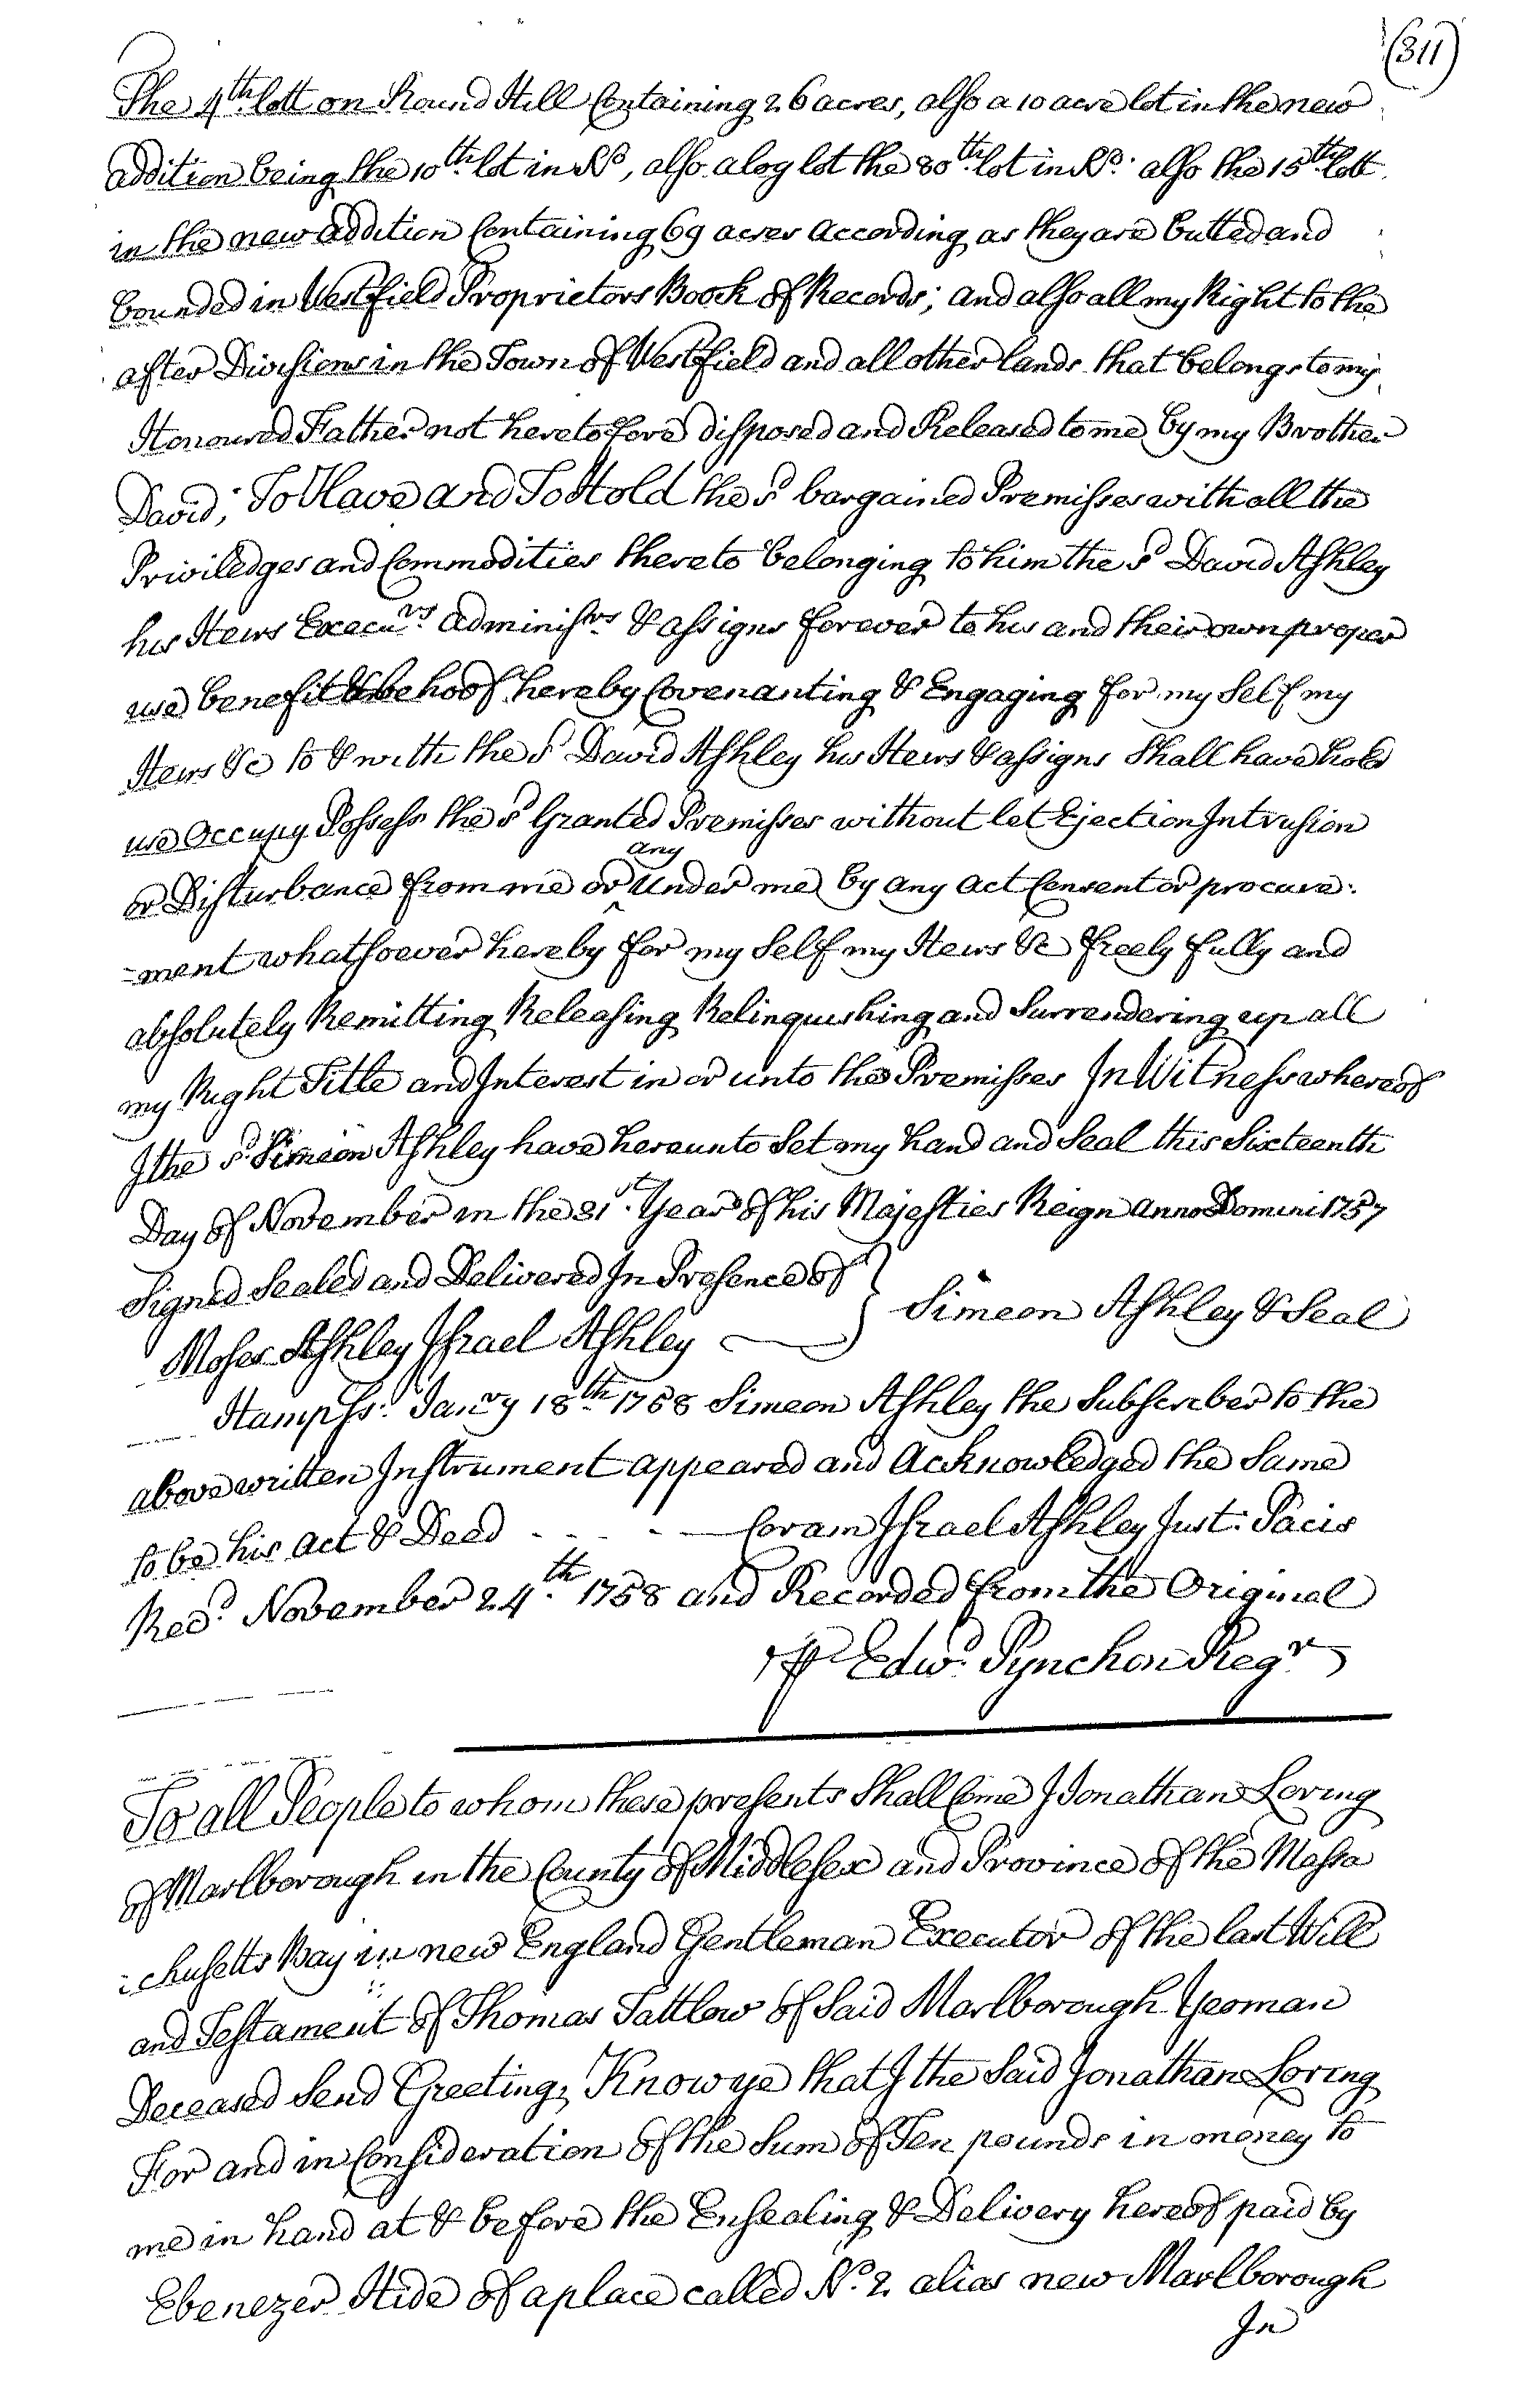 (311)
The 4th lott on Round Hill Containing 26 acres, also a 10 acre lot in the new
addition being the 10th lot in No, also a log lot the 80th lot in No: also the 15th lott
in the new addition Containing 69 acres according as they are butted and
bounded in Westfield Proprietors Boock of Records; and also all my Right to the
after Divisions in the Town of Westfield and all other lands that belongs to my
Honoured Father not heretofore disposed and Released to me by my Brother
David; To Have and To Hold the sd bargained Premisses with all the
Priviledges and Commodities thereto belonging to him the sd David Ashley
his Heirs Execurs administrs & assigns forever to his and their own proper
use benefit & behoof hereby Covenanting & Engaging for my Self my
Heirs &c to & with the sd David Ashley his Heirs & assigns Shall have hold
use Occupy Possess the sd Granted Premisses without let Ejection Intrusion
or Disturbance from me or any Under me by any act Consent or procure:
-ment whatsoever hereby for my Self my Heirs &c freely fully and
absolutely Remitting Releasing Relinquishing and Surrendering up all
my Right Title and Interest in or unto the Premisses In Witness whereof
I the sd Simeon Ashley have hereunto Set my hand and Seal this Sixteenth
Day of November in the 31st Year of his Majesties Reign Anno Domini 1757
Signed Sealed and Delivered In Presence of } Simeon Ashley & Seal
Moses Ashley Israel Ashley
Hampss: Janry 18th 1758 Simeon Ashley the Subscriber to the
above written Instrument appeared and Acknowledged the Same
to be his act & Deed - - - - Coram Israel Ashley Just: Pacis
Recd November 24th 1758 and Recorded from the Original
℔ Edwd Pynchon Regr
To all People to whom these presents Shall Come I Jonathan Loring
of Marlborough in the County of Middlesex and Province of the Massa
:chusetts Bay in new England Gentleman Executor of the last Will
and Testament of Thomas Tattlow of Said Marlborough Yeoman
Deceased Send Greeting, Know ye that I the Said Jonathan Loring
For and in Consideration of the Sum of Ten pounds in money to
me in hand at & before the Ensealing & Delivery hereof paid by
Ebenezer Hide of a place called No. 2 alias new Marlborough
In